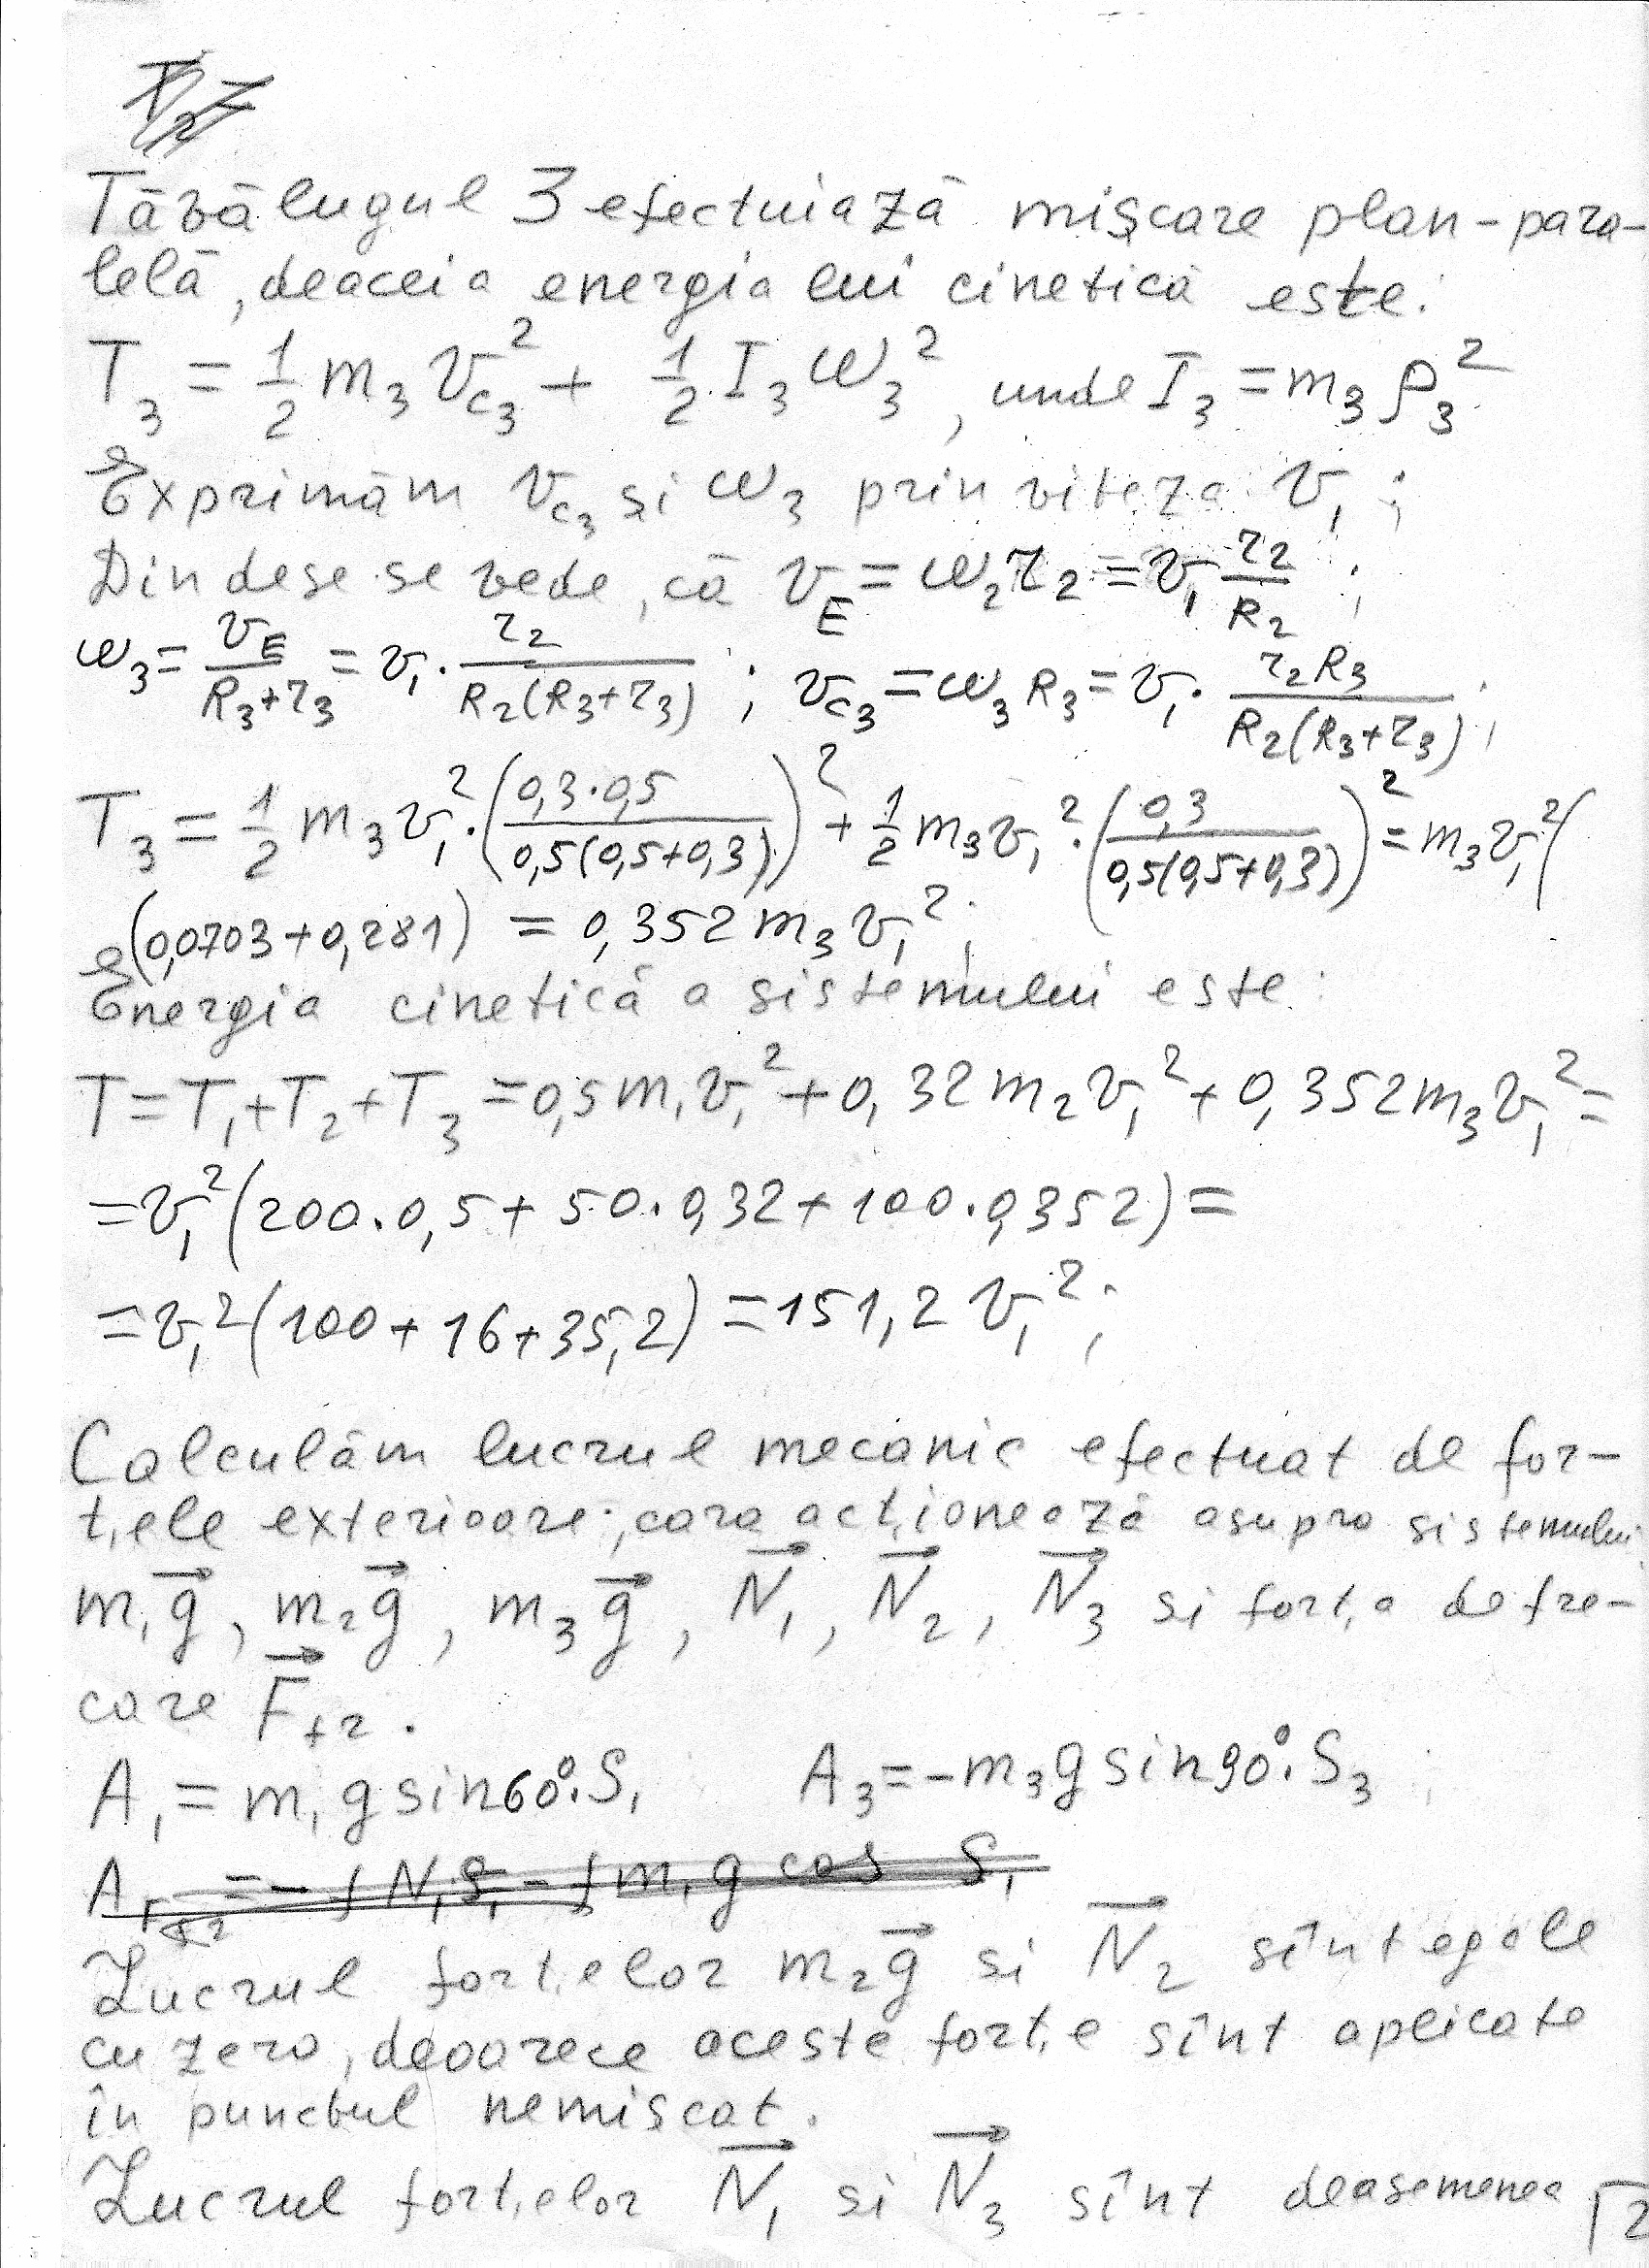 Tăvălugul 3 efectuiază mișcare plan-para-
lelă, deaceia energia lui cinetică este:
T₃ = 1/2 m₃ v_c₃² + 1/2 I₃ ω₃², unde I₃ = m₃ ρ₃²
Exprimăm v_c₃ și ω₃ prin viteza v₁;
Din dese se vede, că v_E = ω₂ r₂ = v₁ r₂/R₂;
ω₃ = v_E/(R₃+r₃) = v₁ · r₂/(R₂(R₃+r₃)); v_c₃ = ω₃ R₃ = v₁ · r₂R₃/(R₂(R₃+r₃));
T₃ = 1/2 m₃ v₁² · (0,3·0,5/(0,5(0,5+0,3)))² + 1/2 m₃ v₁² · (0,3/(0,5(0,5+0,3)))² = m₃ v₁² (
(0,0703+0,281) = 0,352 m₃ v₁²;
Energia cinetică a sistemului este:
T = T₁+T₂+T₃ = 0,5 m₁ v₁² + 0,32 m₂ v₁² + 0,352 m₃ v₁² =
= v₁² (200·0,5 + 50·0,32 + 100·0,352) =
= v₁² (100 + 16 + 35,2) = 151,2 v₁²;
Calculăm lucrul mecanic efectuat de for-
țele exterioare, cara acționează asupra sistemului
m₁g⃗, m₂g⃗, m₃g⃗, N⃗₁, N⃗₂, N⃗₃ si forța de fre-
care F⃗_fr.
A₁ = m₁ g sin60°·S₁ A₃ = -m₃ g sin90°·S₃;
Lucrul forțelor m₂g⃗ si N⃗₂ sînt egale
cu zero, deoarece aceste forțe sînt aplicate
în punctul nemiscat.
Lucrul forțelor N⃗₁ si N⃗₃ sînt deasemenea